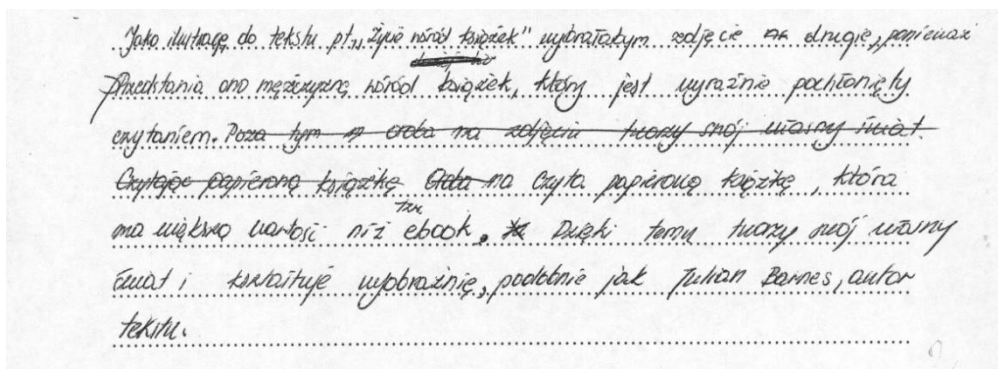 Jako ilustrację do tekstu pt. „Życie wśród książek” wybrałabym zdjęcie drugie, ponieważ
Przedstawia ono mężczyznę wśród książek, który jest wyraźnie pochłonięty
czytaniem. Poza tym osoba na zdjęciu tworzy swój własny świat.
Czytając papierową książkę Osoba na Czyta papierową książkę, która
ma większą wartość niż tzw ebook. Dzięki temu tworzy swój własny
świat i kształtuje wyobraźnię, podobnie jak Julian Barnes, autor
tekstu.